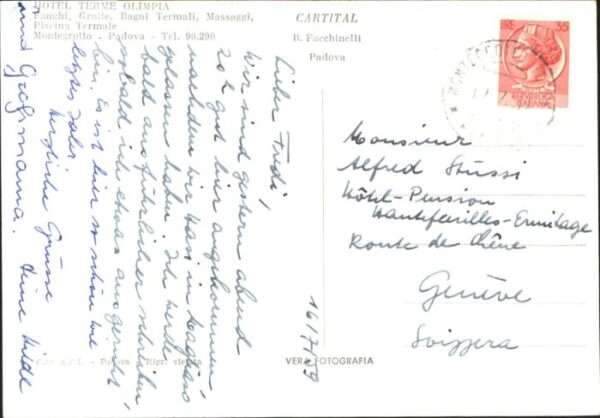 HOTEL TERME OLIMPIA
Fanghi, Grotte, Bagni Termali, Massaggi,
Piscina Termale
Montegrotto - Padova - Tel. 90.290
CARTITAL
B. Facchinelli
Padova
35
Lieber Fredi,
Wir sind gestern abend
gut hier angekommen,
nachdem wir Hans in
gelassen haben. Ich werde
bald ausführlicher schreiben
sobald ich etwas ausgeruht
bin. Es ist hier so schön wie
letztes Jahr.
Herzliche Grüsse
und Grossmama. Deine
16/7/59
Monsieur
Alfred Stüssi
Hôtel-Pension
Hautefeuilles-Ermitage
Route de Chêne
Genève
Svizzera
VERA FOTOGRAFIA